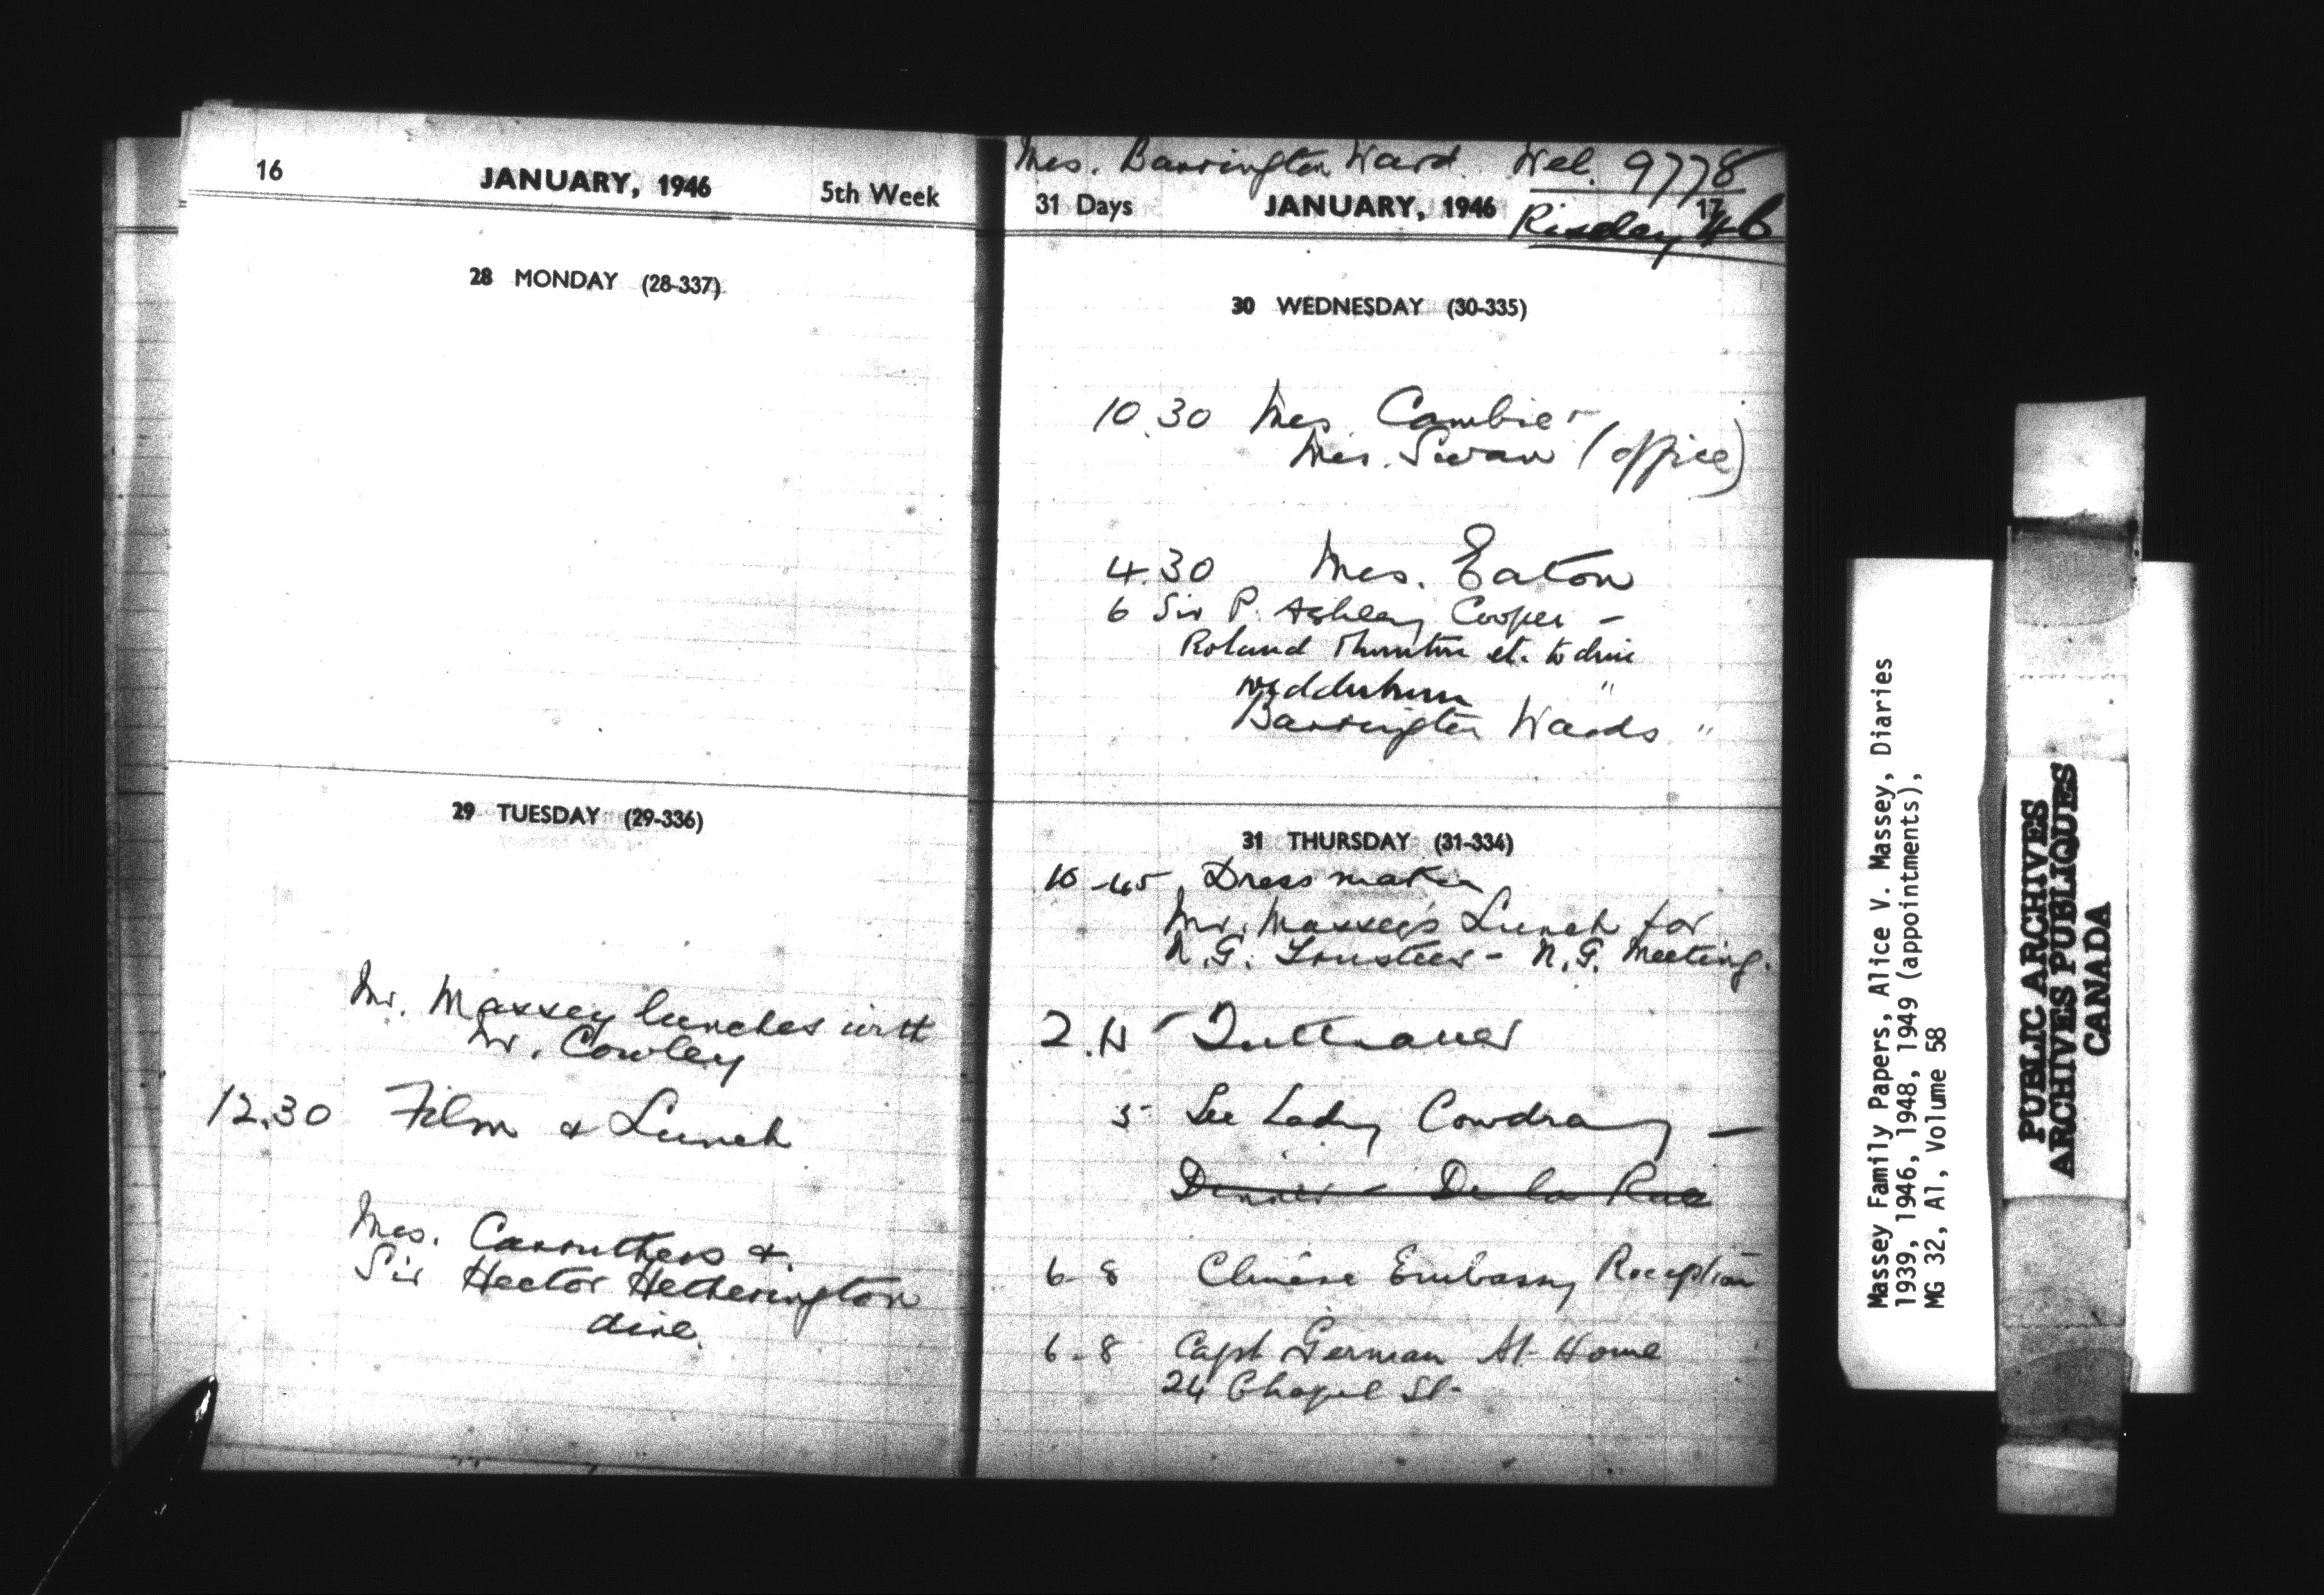 16 JANUARY, 1946 5th Week
28 MONDAY (28-337)
29 TUESDAY (29-336)
Mr. Massey lunches with
Mr. Cowley
12.30 Film & Lunch
Mrs. Carruthers &
Sir Hector Hetherington
dine.
Mrs. Barrington Ward. Wel. 9778
31 Days JANUARY, 1946 17
30 WEDNESDAY (30-335)
10.30 Mrs. Cambie
Mrs. Swan (office)
4.30 Mrs. Eaton
6 Sir P. Ashley Cooper -
Roland Thornton etc. to dine
Wedderburn "
Barrington Wards "
31 THURSDAY (31-334)
10-45 Dressmaker
Mr. Massey's Lunch for
N.G. Trustees - N.G. Meeting.
2.15
5 See Lady Cowdray -
Dinner - De la Rue
6-8 Chinese Embassy Reception
6-8 Capt German At Home
24 Chapel St.
Massey Family Papers, Alice V. Massey, Diaries
1939, 1946, 1948, 1949 (appointments),
MG 32, A1, Volume 58
PUBLIC ARCHIVES
ARCHIVES PUBLIQUES
CANADA